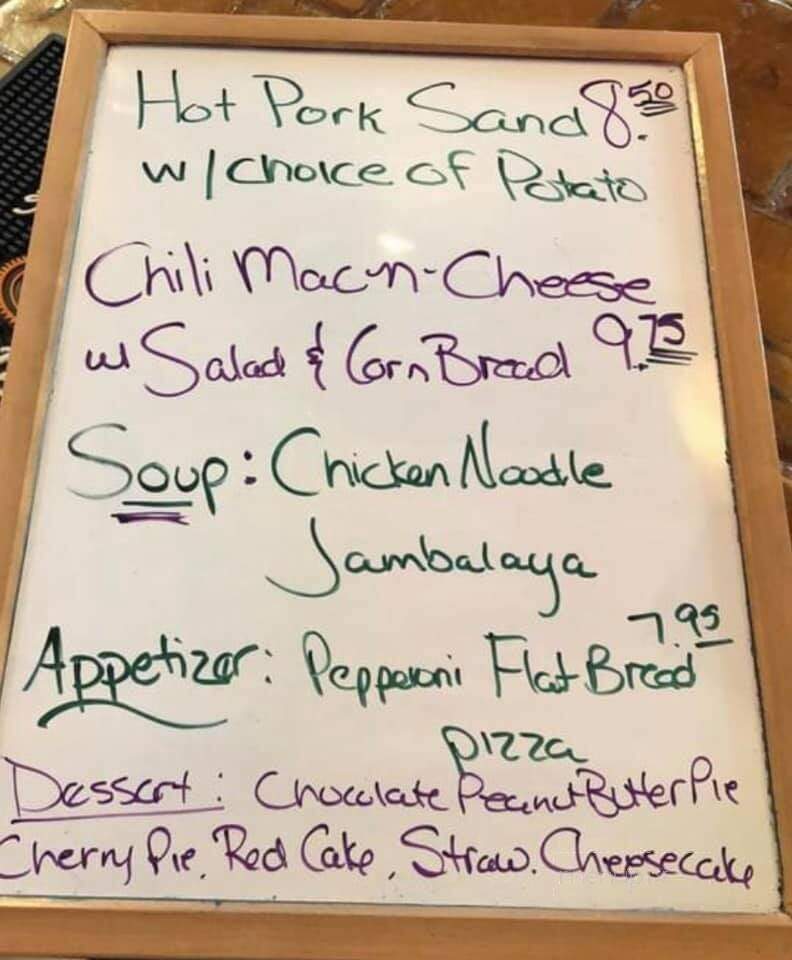 Hot Pork Sand 8.50
w/choice of Potato
Chili Mac-n-Cheese
w/ Salad & Corn Bread 9.75
Soup: Chicken Noodle
Jambalaya
Appetizer: Pepperoni Flat Bread 7.95
pizza
Dessert: Chocolate Peanut Butter Pie
Cherry Pie, Red Cake, Straw. Cheesecake